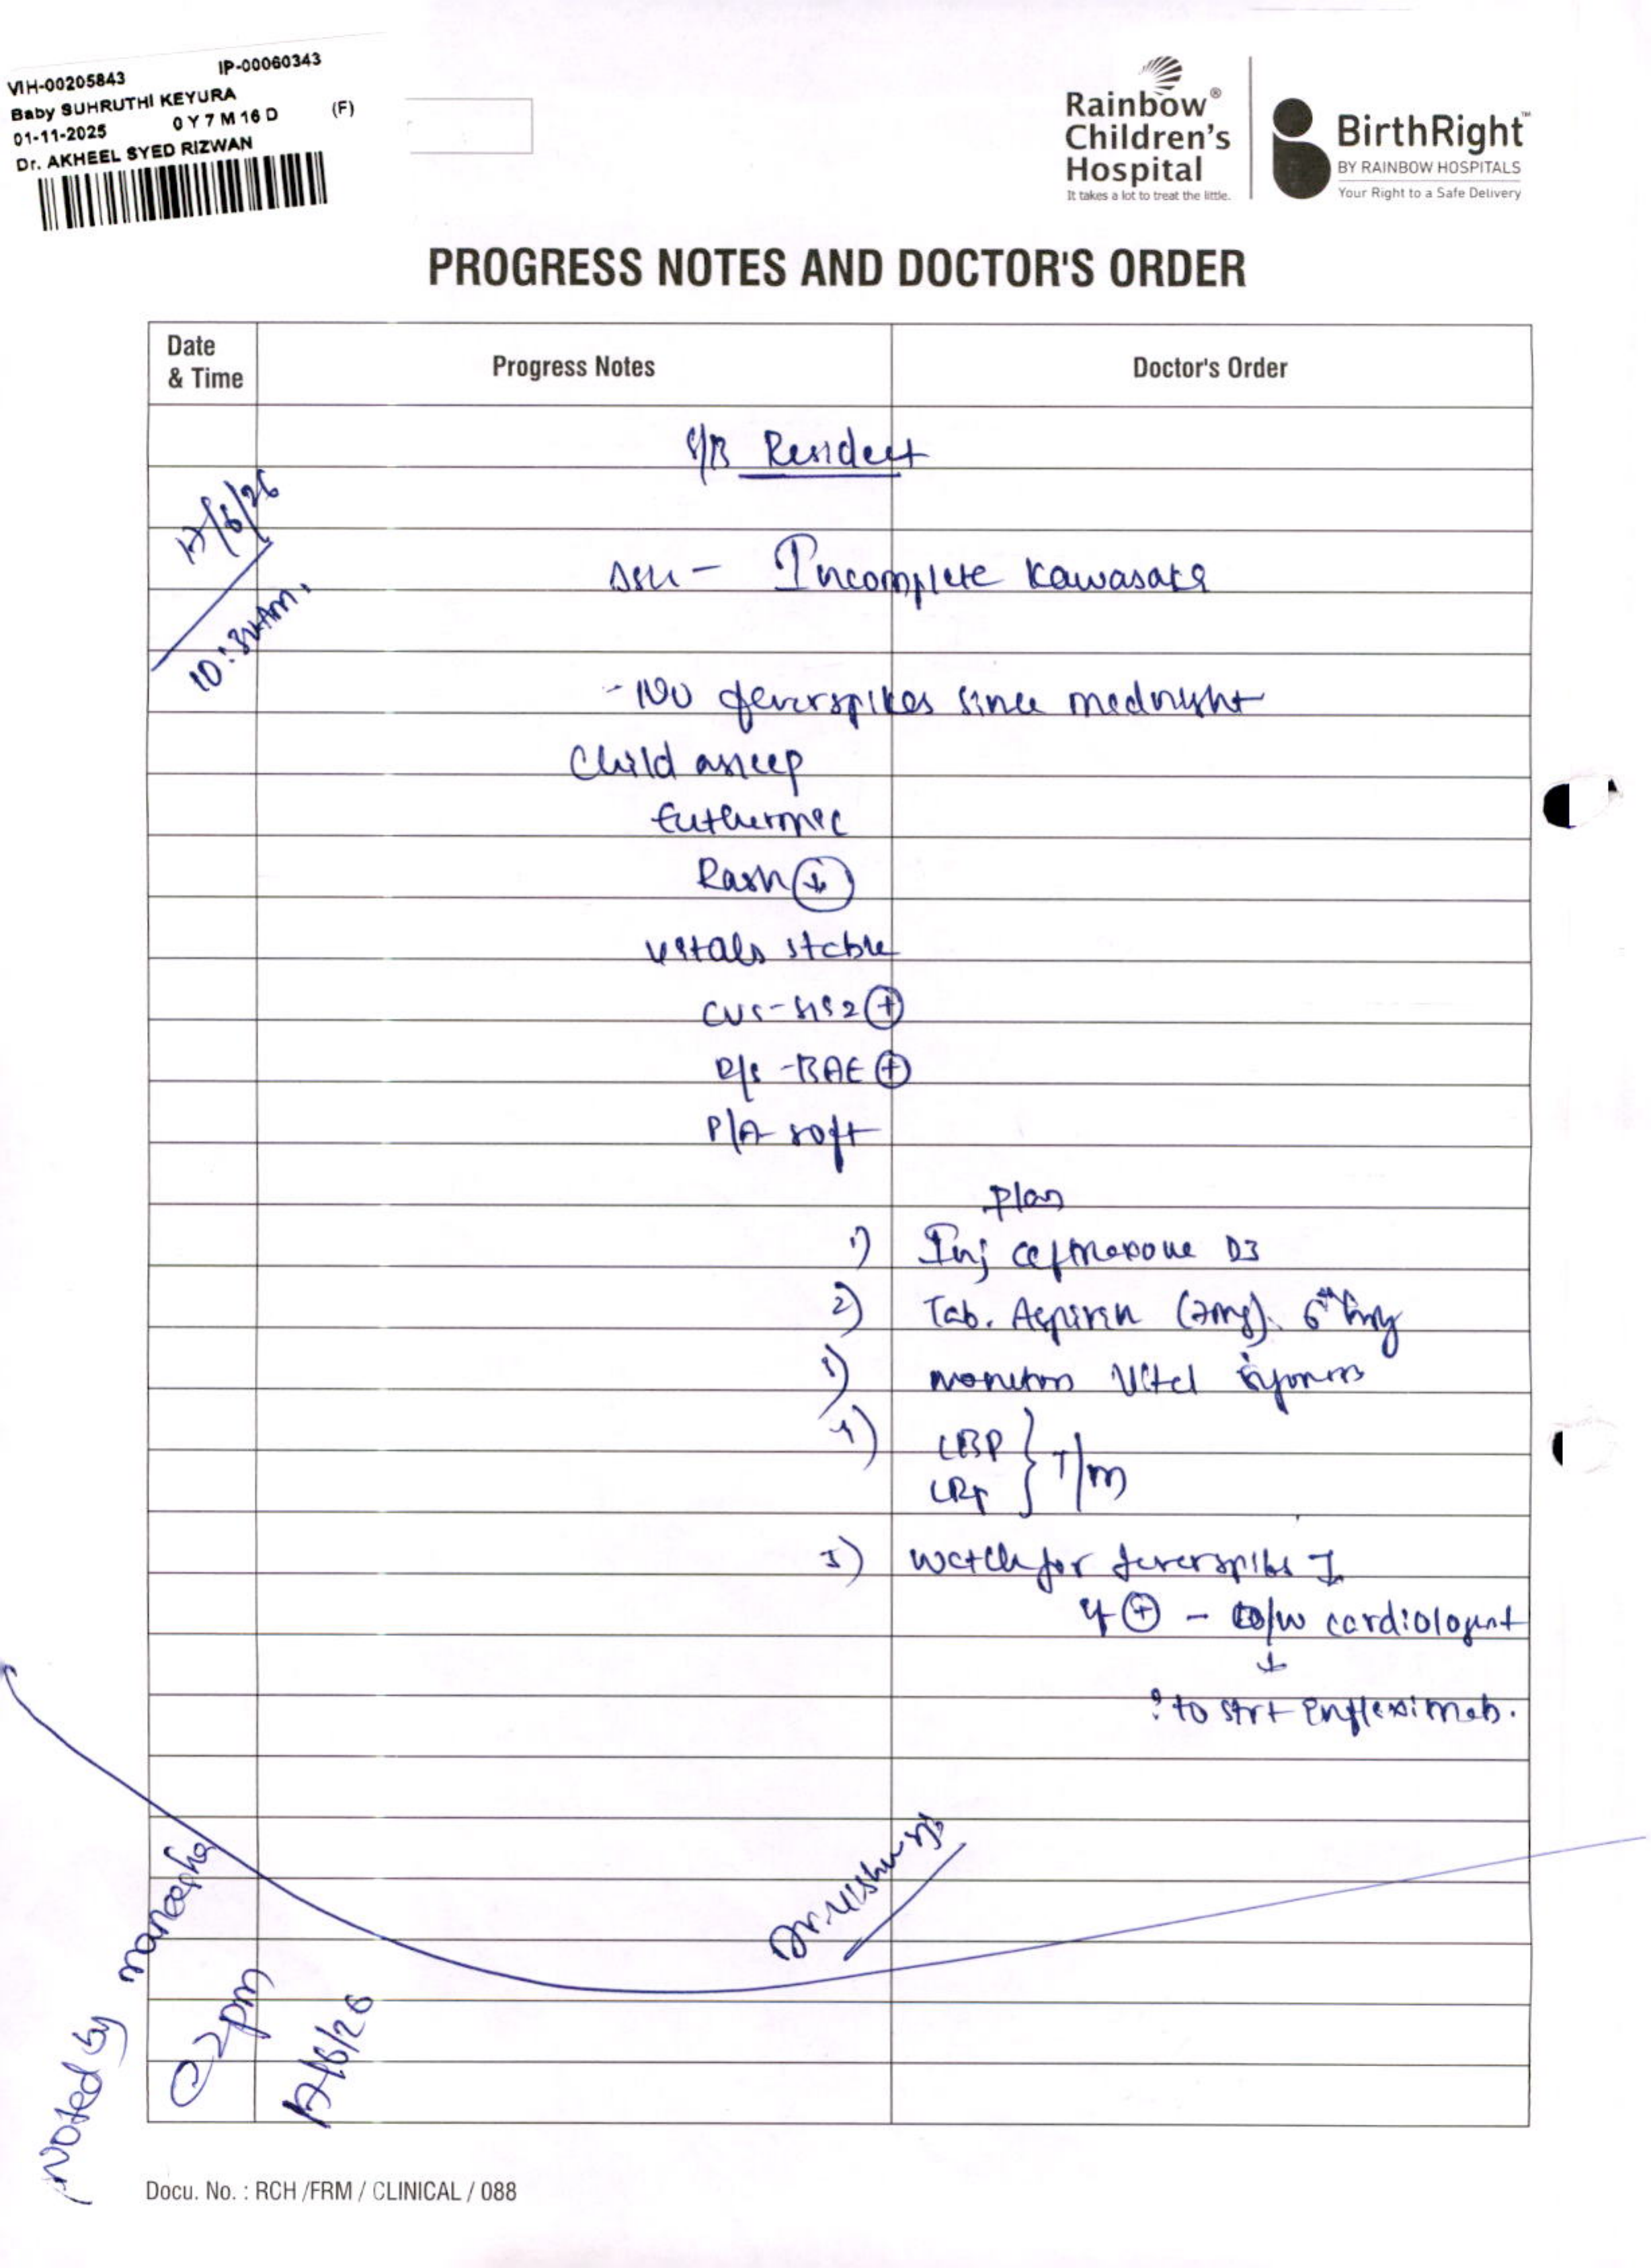 VIH-00205843 IP-00060343
Baby SUHRUTHI KEYURA
01-11-2025 0 Y 7 M 16 D (F)
Dr. AKHEEL SYED RIZWAN
Rainbow®
Children's
Hospital
It takes a lot to treat the little.
BirthRight™
BY RAINBOW HOSPITALS
Your Right to a Safe Delivery
PROGRESS NOTES AND DOCTOR'S ORDER
Date
& Time
Progress Notes
Doctor's Order
S/B Resident
17/6/26
10:30AM.
- Incomplete Kawasaki
- No fever spikes since midnight
Child asleep
Euthermic
Rash ↓
Vitals stable
CVS - S1S2 +
R/S - BAE +
P/A soft
Plan
1) Inj Ceftriaxone D3
2) Tab. Aspirin
3) monitor Vital
4) CBP } T/m
CRP
5) Watch for fever spikes
if + - D/w cardiologist
↓
? to start Infleximab.
Noted by
maneesha
@ 2pm
17/6/26
Docu. No. : RCH /FRM / CLINICAL / 088